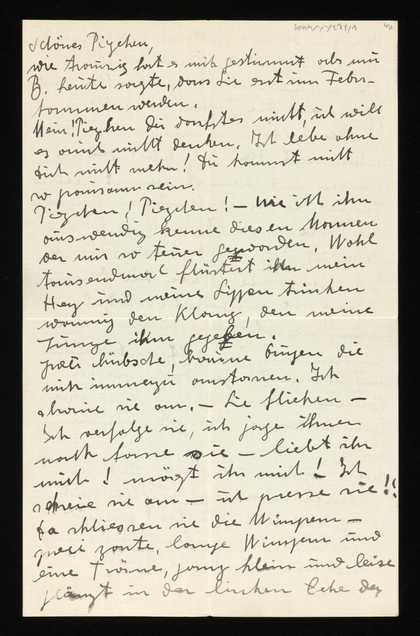 Schönes Piezchen,
wie traurig hat es mich gestimmt als mir
B. heute sagte, dass Sie erst im Febr.
kommen werden.
Nein! Piezchen du darfstes nicht, ich will
es auch nicht denken. Ich lebe ohne
dich nicht mehr! Du kannst nicht
so grausam sein.
Piezchen! Piezchen! – wie ich ihn
auswendig kenne diesen Namen
der mir so teuer geworden. Wohl
tausendmal flüstert ihn mein
Herz und meine Lippen trinken
wonnig den Klang, den meine
Zunge ihm gegeben.
zwei hübsche, braune Augen die
mich immerzu anstarren. Ich
schaue sie an. – Sie fliehen –
Ich verfolge sie, ich jage ihnen
nach fasse sie – liebt ihr
mich! mögt ihr mich! Ich
schaue sie an – ich presse sie!!
Da schliessen sie die Wimpern –
zwei zarte, lange Wimpern und
eine Träne, ganz klein und leise
glänzt in der linken Ecke des